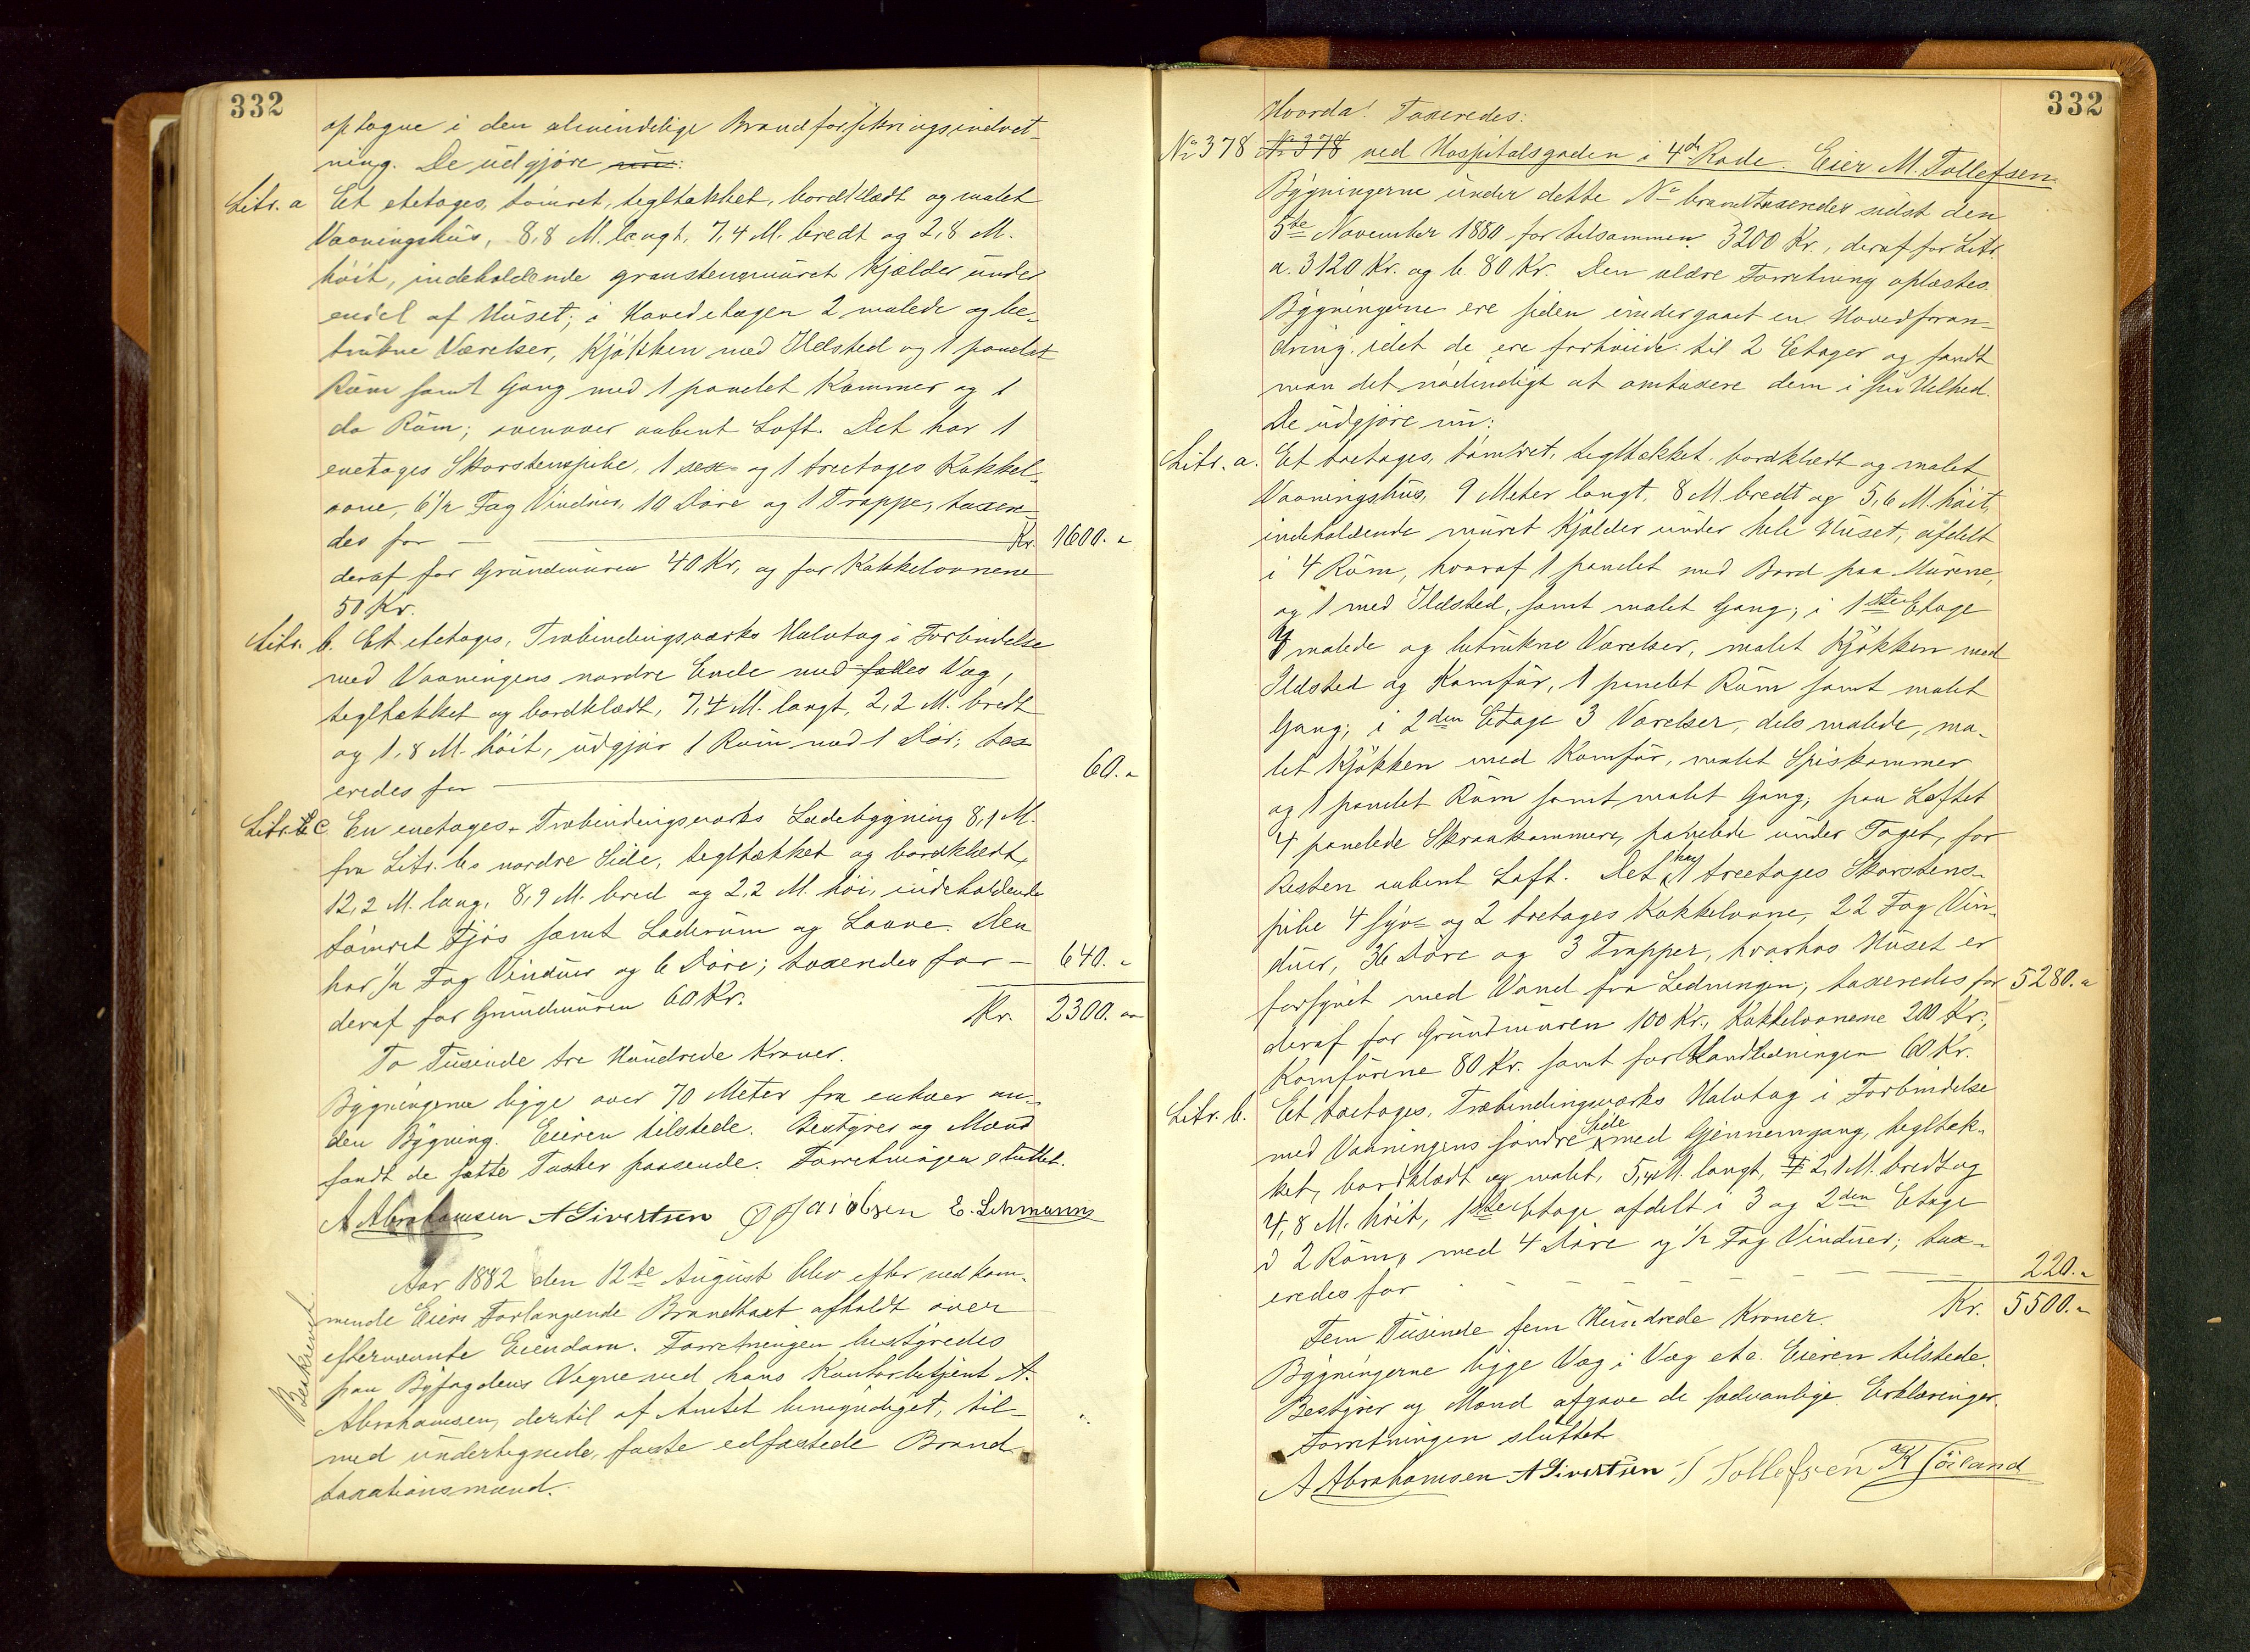 332
optagne i den almindelige Brandforsikringsindret-
ning. De udgjøre nu:
Litr. a Et etetages, tømret, tegltækket, bordklædt og malet
Vaaningshus, 8,8 M. langt, 7,4 M. bredt og 2,8 M.
høit, indeholdende graastensmuret Kjælder under
endel af Huset; i Hovedetagen 2 malede og be-
trukne Værelser, Kjøkken med Ildsted og 1 panelet
Rum samt Gang med 1 panelet Kammer og 1
do Rum; ovenover aabent Loft. Det har 1
enetages Skorstenspibe, 1 sex- og 1 treetages Kakkel-
ovne, 6 1/2 Fag Vinduer, 10 Døre og 1 Trappe, taxere-
des for — Kr. 1600. "
deraf for Grundmuren 40 Kr, og for Kakkelovnene
50 Kr.
Litr. b. Et etetages, Træbindingsværks Halvtag i Forbindelse
med Vaaningens nordre Ende med fælles Væg,
tegltækket og bordklædt, 7,4 M. langt, 2,2 M. bredt
og 1,8 M. høit, udgjør 1 Rum med 1 Dør; tax-
eredes for — 60. "
Litr. c. En enetages Træbindingsværks Ladebygning 8,1 M.
fra Litr. bs nordre Side, tegltækket og bordklædt,
12,2 M. lang, 8,9 M. bred og 2,2 M. høi, indeholdende
tømret Fjøs samt Laderum og Laave. Den
har 1/2 Fag Vinduer og 6 Døre; taxeredes for — 640. "
deraf for Grundmuren 60 Kr.
Kr. 2300. "
To Tusinde tre Hundrede Kroner.
Bygningerne ligge over 70 Meter fra enhver an-
den Bygning. Eieren tilstede. Bestyrer og Mænd
fandt de satte Taxter passende. Forretningen sluttet.
A Abrahamsen A Sivertsen Jacobsen E. Lehmann
Aar 1882 den 12te August blev efter vedkom-
mende Eiers Forlangende Brandtaxt afholdt over
efternævnte Eiendom. Forretningen bestyredes
paa Byfogdens Vegne ved hans Kontorbetjent A.
Abrahamsen, dertil af Amtet bemyndiget, til-
med undertegnede, faste edfæstede Brand-
taxationsmænd.
Beskrevet
332
Hvorda! Taxeredes:
No 378 No 378 ved Hospitalsgaden i 4de Rode. Eier M. Tollefsen
Bygningerne under dette No brandtaxeredes sidst den
5te November 1880 for tilsammen 3200 Kr., deraf for Litr.
a. 3120 Kr. og b. 80 Kr. Den ældre Forretning oplæstes.
Bygningerne ere siden undergaaet en Hovedforan-
dring, idet de ere forhøiede til 2 Etager og fandt
man det nødvendigt at omtaxere dem i sin Helhed.
De udgjøre nu:
Litr. a. Et toetages, tømret, tegltækket, bordklædt og malet
Vaaningshus, 9 Meter langt, 8 M. bredt og 5,6 M. høit,
indeholdende muret Kjælder under hele Huset, afdelt
i 4 Rum, hvoraf 1 panelet med Bord paa Murene,
og 1 med Ildsted, samt malet Gang; i 1ste Etage
malede og betrukne Værelser, malet Kjøkken med
Ildsted og Komfur, 1 panelet Rum samt malet
Gang; i 2den Etage 3 Værelser, dels malede, ma-
let Kjøkken med Komfur, malet Spiskammer
og 1 panelet Rum samt malet Gang; paa Loftet
4 panelede Skraakammere, panelede under Taget, for
Resten aabent Loft. Det har 1 treetages Skorstens-
pibe 4 syv- og 2 tretages Kakkelovne, 22 Fag Vin-
duer, 36 Døre og 3 Trapper, hvorhos Huset er
forsynet med Vand fra Ledningen; taxeredes for 5280. "
deraf for Grundmuren 100 Kr., Kakkelovnene 200 Kr.,
Komfurene 80 Kr. samt for Vandledningen 60 Kr.
Litr. b. Et toetages, Træbindingsværks Halvtag i Forbindelse
med Vaaningens søndre Side med Gjennemgang, tegltæk-
ket, bordklædt og malet, 5,4 M. langt, 2,1 M. bredt og
4,8 M. høit, 1ste Etage afdelt i 3 og 2den Etage
i 2 Rum, med 4 Døre og 1/2 Fag Vinduer; tax-
eredes for — 220. "
Kr. 5500. "
Fem Tusinde fem Hundrede Kroner.
Bygningerne ligge Væg i Væg etc. Eieren tilstede.
Bestyrer og Mænd afgave de sædvanlige Erklæringer.
Forretningen sluttet
A Abrahamsen A Sivertsen Tollefsen K Søiland